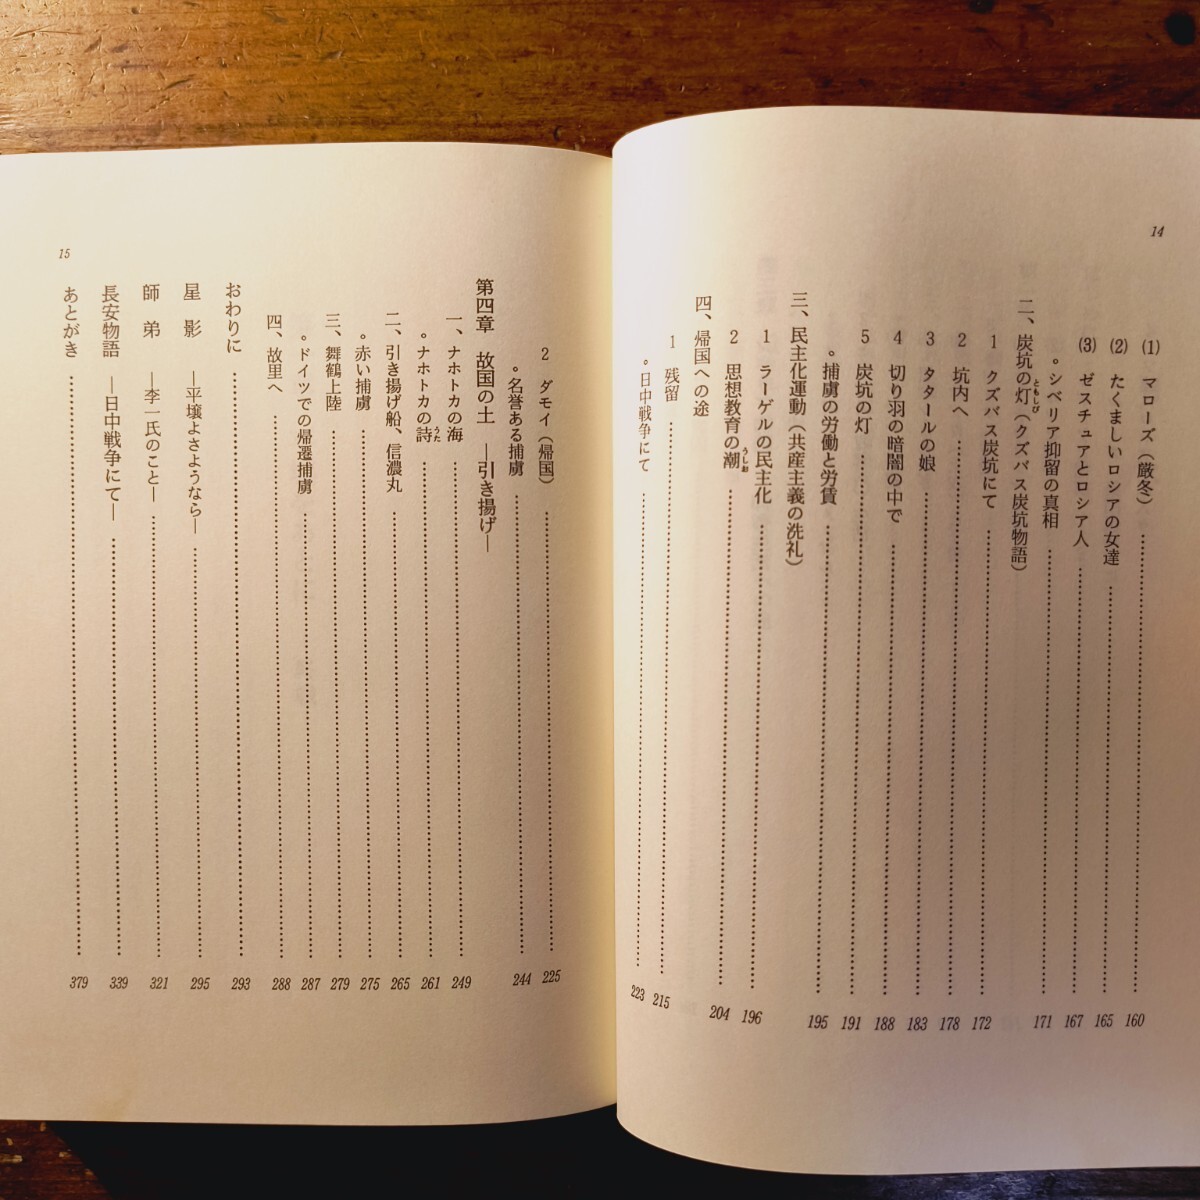 14
(1) マローズ（厳冬）………160
(2) たくましいロシアの女達………165
(3) ゼスチュアとロシア人………167
。シベリア抑留の真相………171
二、炭坑の灯（クズバス炭坑物語）
ともしび
1 クズバス炭坑にて………172
2 坑内へ………178
3 タタールの娘………183
4 切り羽の暗闇の中で………188
5 炭坑の灯………191
。捕虜の労働と労賃………195
三、民主化運動（共産主義の洗礼）
1 ラーゲルの民主化………196
2 思想教育の潮………204
うしお
四、帰国への途
1 残留………215
。日中戦争にて………223
15
2 ダモイ（帰国）………225
。名誉ある捕虜………244
第四章 故国の土 ―引き揚げ―
一、ナホトカの海………249
。ナホトカの詩………261
うた
二、引き揚げ船、信濃丸………265
。赤い捕虜………275
三、舞鶴上陸………279
。ドイツでの帰還捕虜………287
四、故里へ………288
おわりに………293
星影 ―平壌よさようなら―………295
師弟 ―李一氏のこと―………321
長安物語 ―日中戦争にて―………339
あとがき………379